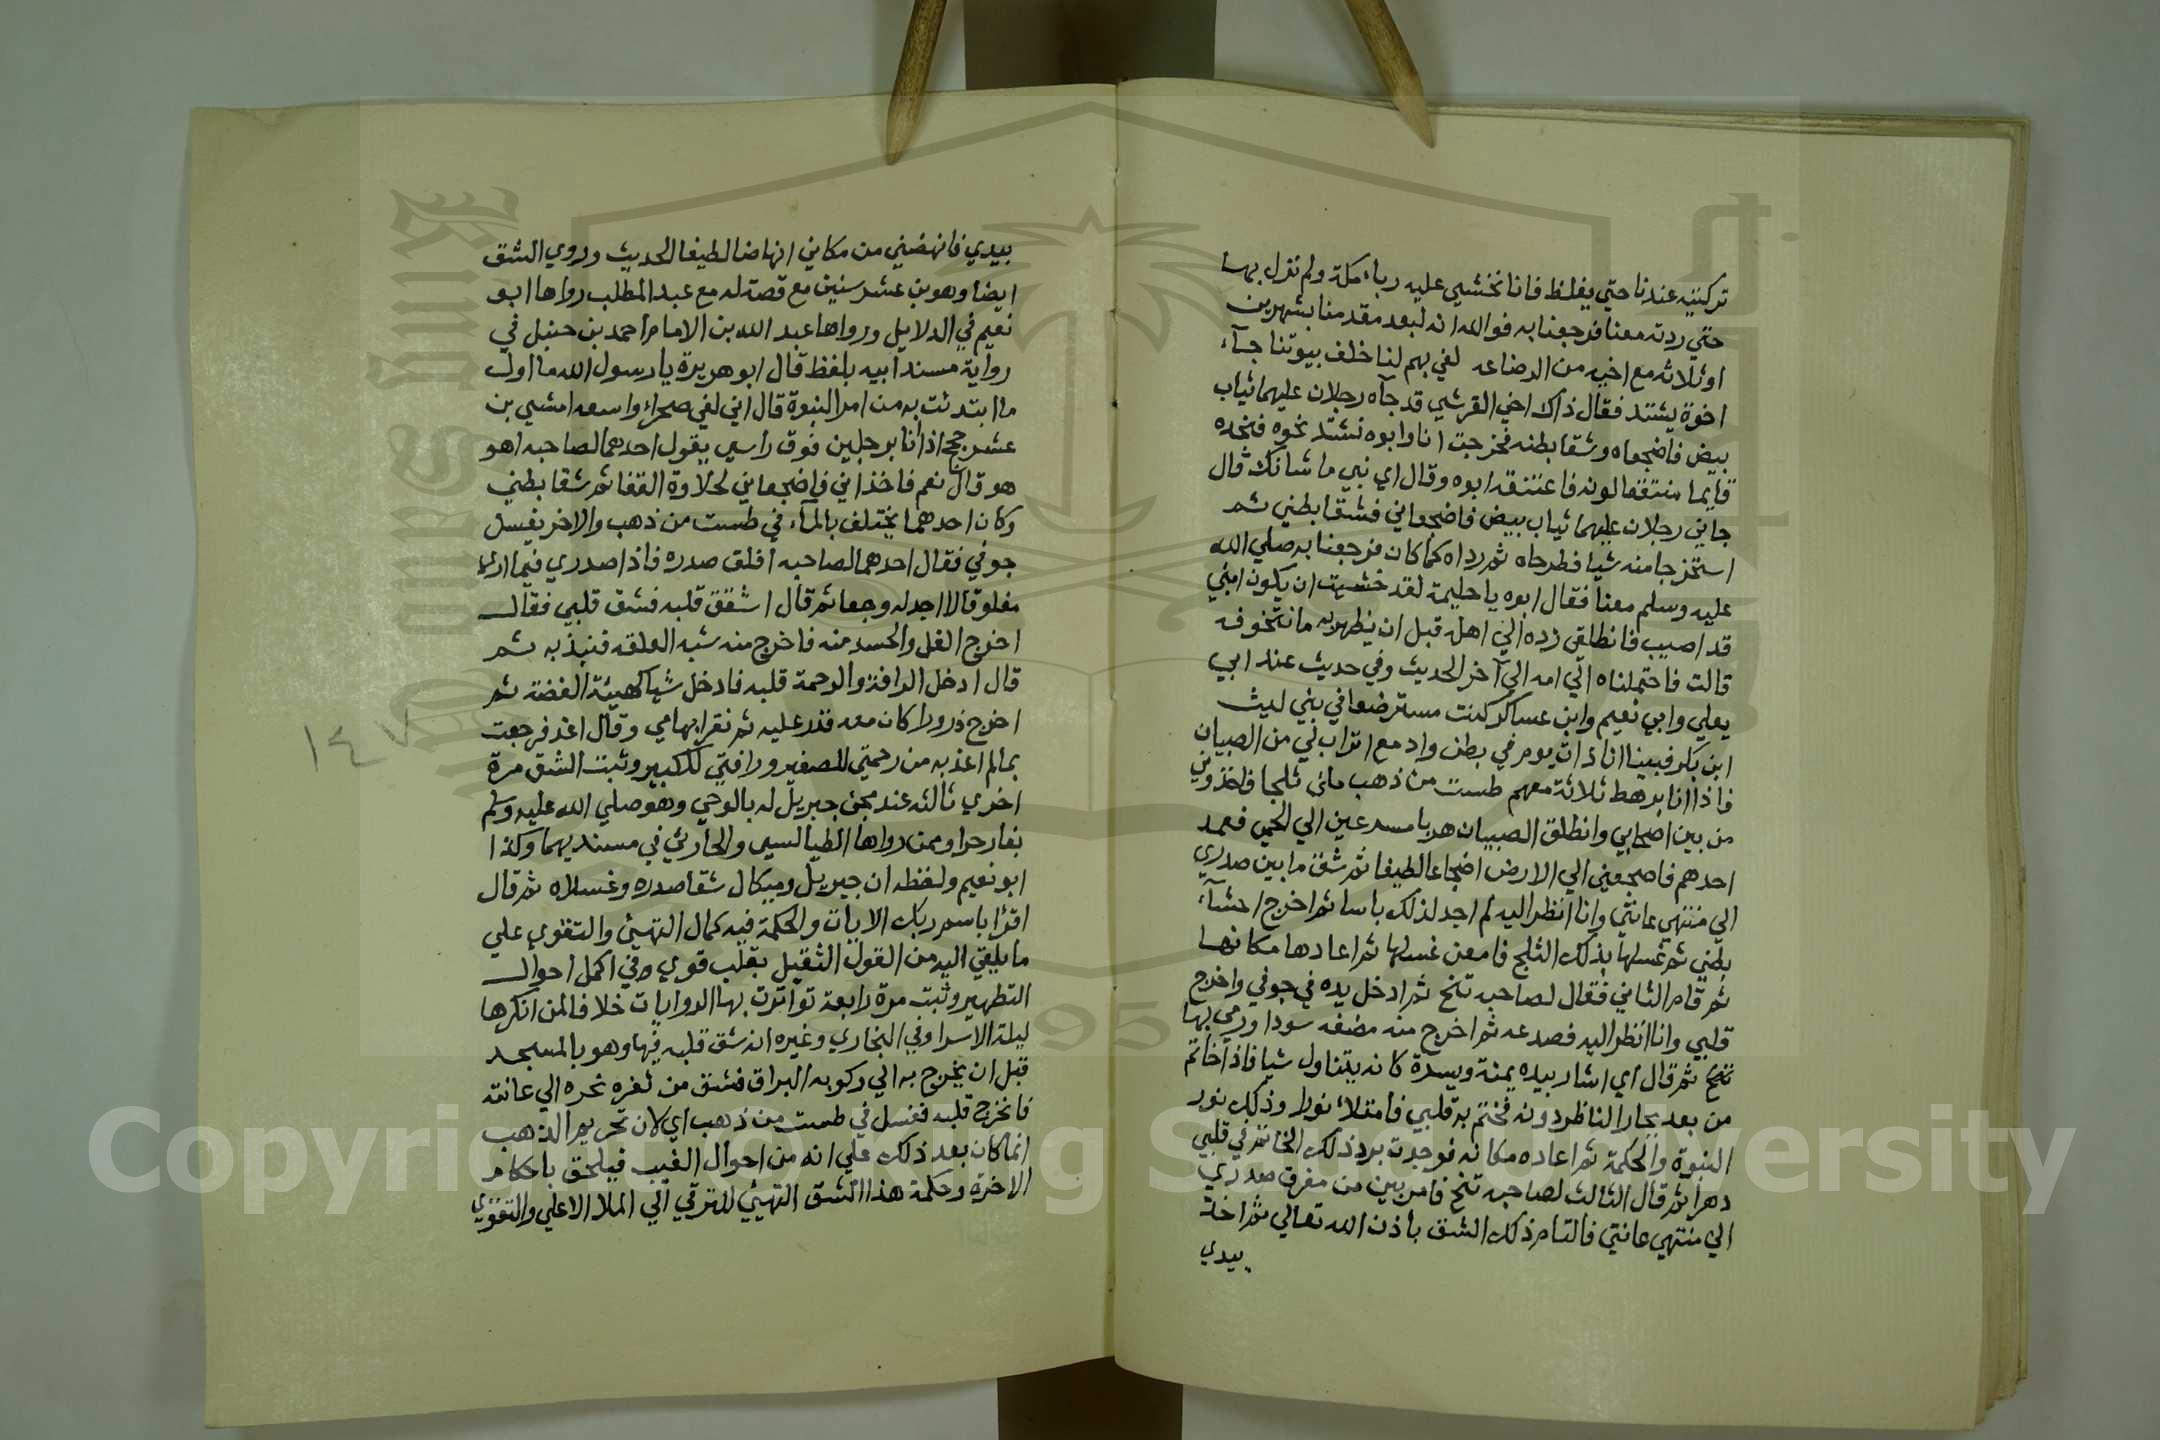 تركتيه عندنا حتي يغلظ فانا نخشي عليه رباء مكة ولم نزل بها
حتي ردته معنا فرجعنا به فوالله انه لبعد مقدمنا بشهرين
او ثلاثه مع اخيه من الرضاعه لفي بهم لنا خلف بيوتنا جآء
اخوة يشتد فقال ذاك اخي القرشي قد جآه رجلان عليهما ثياب
بيض فاضجعاه وشقا بطنه فخرجت انا وابوه نشتد نحوه فنجده
قايما منتقعا لونه فاعتنقه ابوه وقال اي نبي ما شانك قال
جاني رجلان عليهما ثياب بيض فاضجعاني فشقا بطني ثم
استخرجا منه شيا فطرحاه ثم رداه كما كان فرجعنا به صلي الله
عليه وسلم معنا فقال ابوه يا حليمة لقد خشيت ان يكون ابني
قد اصيب فانطلقي نرده الي اهله قبل ان يظهر به ما نتخوف
قالت فاحتملناه الي امه الي آخر الحديث وفي حديث عند ابي
يعلي وابي نعيم وابن عساكر كنت مسترضعا في بني ليث
ابن بكر فبينا انا ذات يوم في بطن واد مع اتراب لي من الصبيان
فاذا انا برهط ثلاثة معهم طست من ذهب ملئ ثلجا فاخذوني
من بين اصحابي وانطلق الصبيان هربا مسرعين الي الحي فعمد
احدهم فاضجعني الي الارض اضجاعا لطيفا ثم شق ما بين صدري
الي منتهي عانتي وانا انظر اليه لم اجد لذلك باسا ثم اخرج احشآء
بطني ثم غسلها بذلك الثلج فامعن غسلها ثم اعادها مكانها
ثم قام الثاني فقال لصاحبه تنح ثم ادخل يده في جوفي واخرج
قلبي وانا انظر اليه فصدعه ثم اخرج منه مضغه سودا ورمي بها
تنح ثم قال اي اشار بيده يمنة ويسرة كانه يتناول شيا فاذا خاتم
من بعد يحار الناظر دونه فختم به قلبي فامتلاء نورا وذلك نور
النبوة والحكمة ثم اعاده مكانه فوجدت برد ذلك الخاتم في قلبي
دهرا ثم قال الثالث لصاحبه تنح فامر بين من مفرق صدري
الي منتهي عانتي فالتام ذلك الشق باذن الله تعالي ثم اخذ
بيدي
بيدي فانهضني من مكاني انهاضا لطيفا الحديث وروي الشق
ايضا وهو بن عشر سنين مع قصة له مع عبد المطلب رواها ابو
نعيم في الدلايل ورواها عبد الله بن الامام احمد بن حنبل في
رواية مسند ابيه بلفظ قال ابو هريرة يا رسول الله ما اول
ما ابتدئت به من امر النبوة قال اني لفي صحراء واسعه امشي بن
عشر حجج اذا انا برجلين فوق راسي يقول احدهما لصاحبه اهو
هو قال نعم فاخذاني فاضجعاني لحلاوة القفا ثم شقا بطني
وكان احدهما يختلف بالمآء في طست من ذهب والاخر يغسل
جوفي فقال احدهما لصاحبه افلق صدره فاذا صدري فيما اري
مفلوقا لا اجد له وجعا ثم قال اشقق قلبه فشق قلبي فقال
اخرج الغل والحسد منه فاخرج منه شبه العلقه فنبذ به ثم
قال ادخل الرافة والرحمة قلبه فادخل شيا كهيئة الفضة ثم
اخرج ذرورا كان معه فذر عليه ثم نقر ابهامي وقال اغد فرجعت
بمالم اغد به من رحمتي للصغير ورافتي للكبير وثبت الشق مرة
اخري ثالثه عند مجئ جبريل له بالوحي وهو صلي الله عليه وسلم
بغار حرا وممن رواها الطيالسي والحارثي في مسنديهما وكذا
ابو نعيم ولفظه ان جبريل وميكال شقا صدره وغسلاه ثم قال
اقرا باسم ربك الايات والحكمة فيه كمال التهيئ والتقوي علي
ما يلقي اليه من القول الثقيل بقلب قوي وفي اكمل احوال
التطهير وثبت مرة رابعة تواترت بها الروايات خلافا لمن انكرها
ليلة الاسرا وفي البخاري وغيره انه شق قلبه فيها وهو بالمسجد
قبل ان يخرج به الي ركوبه البراق فشق من ثغره نحره الي عانته
فاخرج قلبه فغسل في طست من ذهب اي لان تحريم الذهب
انما كان بعد ذلك علي انه من احوال الغيب فيلحق باحكام
الاخرة وحكمة هذا الشق التهيئ للترقي الي الملا الاعلي والتقوي
١٤٧
Copyright © King Saud University